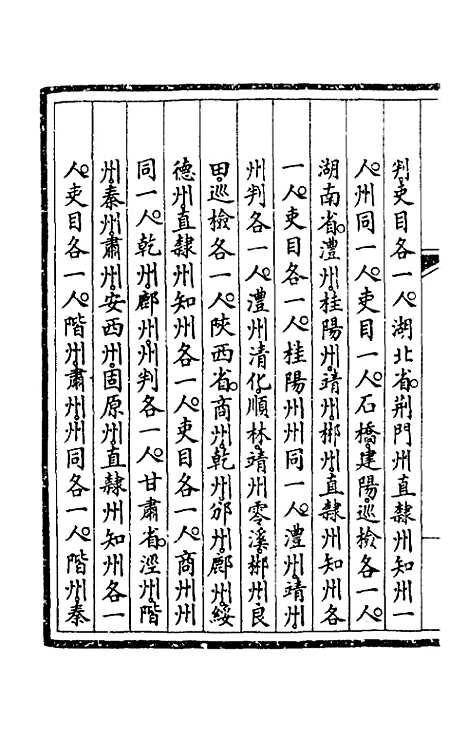 判吏目各一人湖北省荆門州直隷州知州一
人州同一人吏目一人石橋建陽巡檢各一人
湖南省澧州桂陽州靖州郴州直隷州知州各
一人吏目各一人桂陽州州同一人澧州靖州
州判各一人澧州清化順林靖州零溪郴州良
田巡檢各一人陜西省商州乾州邠州鄜州綏
德州直隷州知州各一人吏目各一人商州州
同一人乾州鄜州州判各一人甘肅省涇州階
州秦州肅州安西州固原州直隷州知州各一
人吏目各一人階州肅州州同各一人階州秦